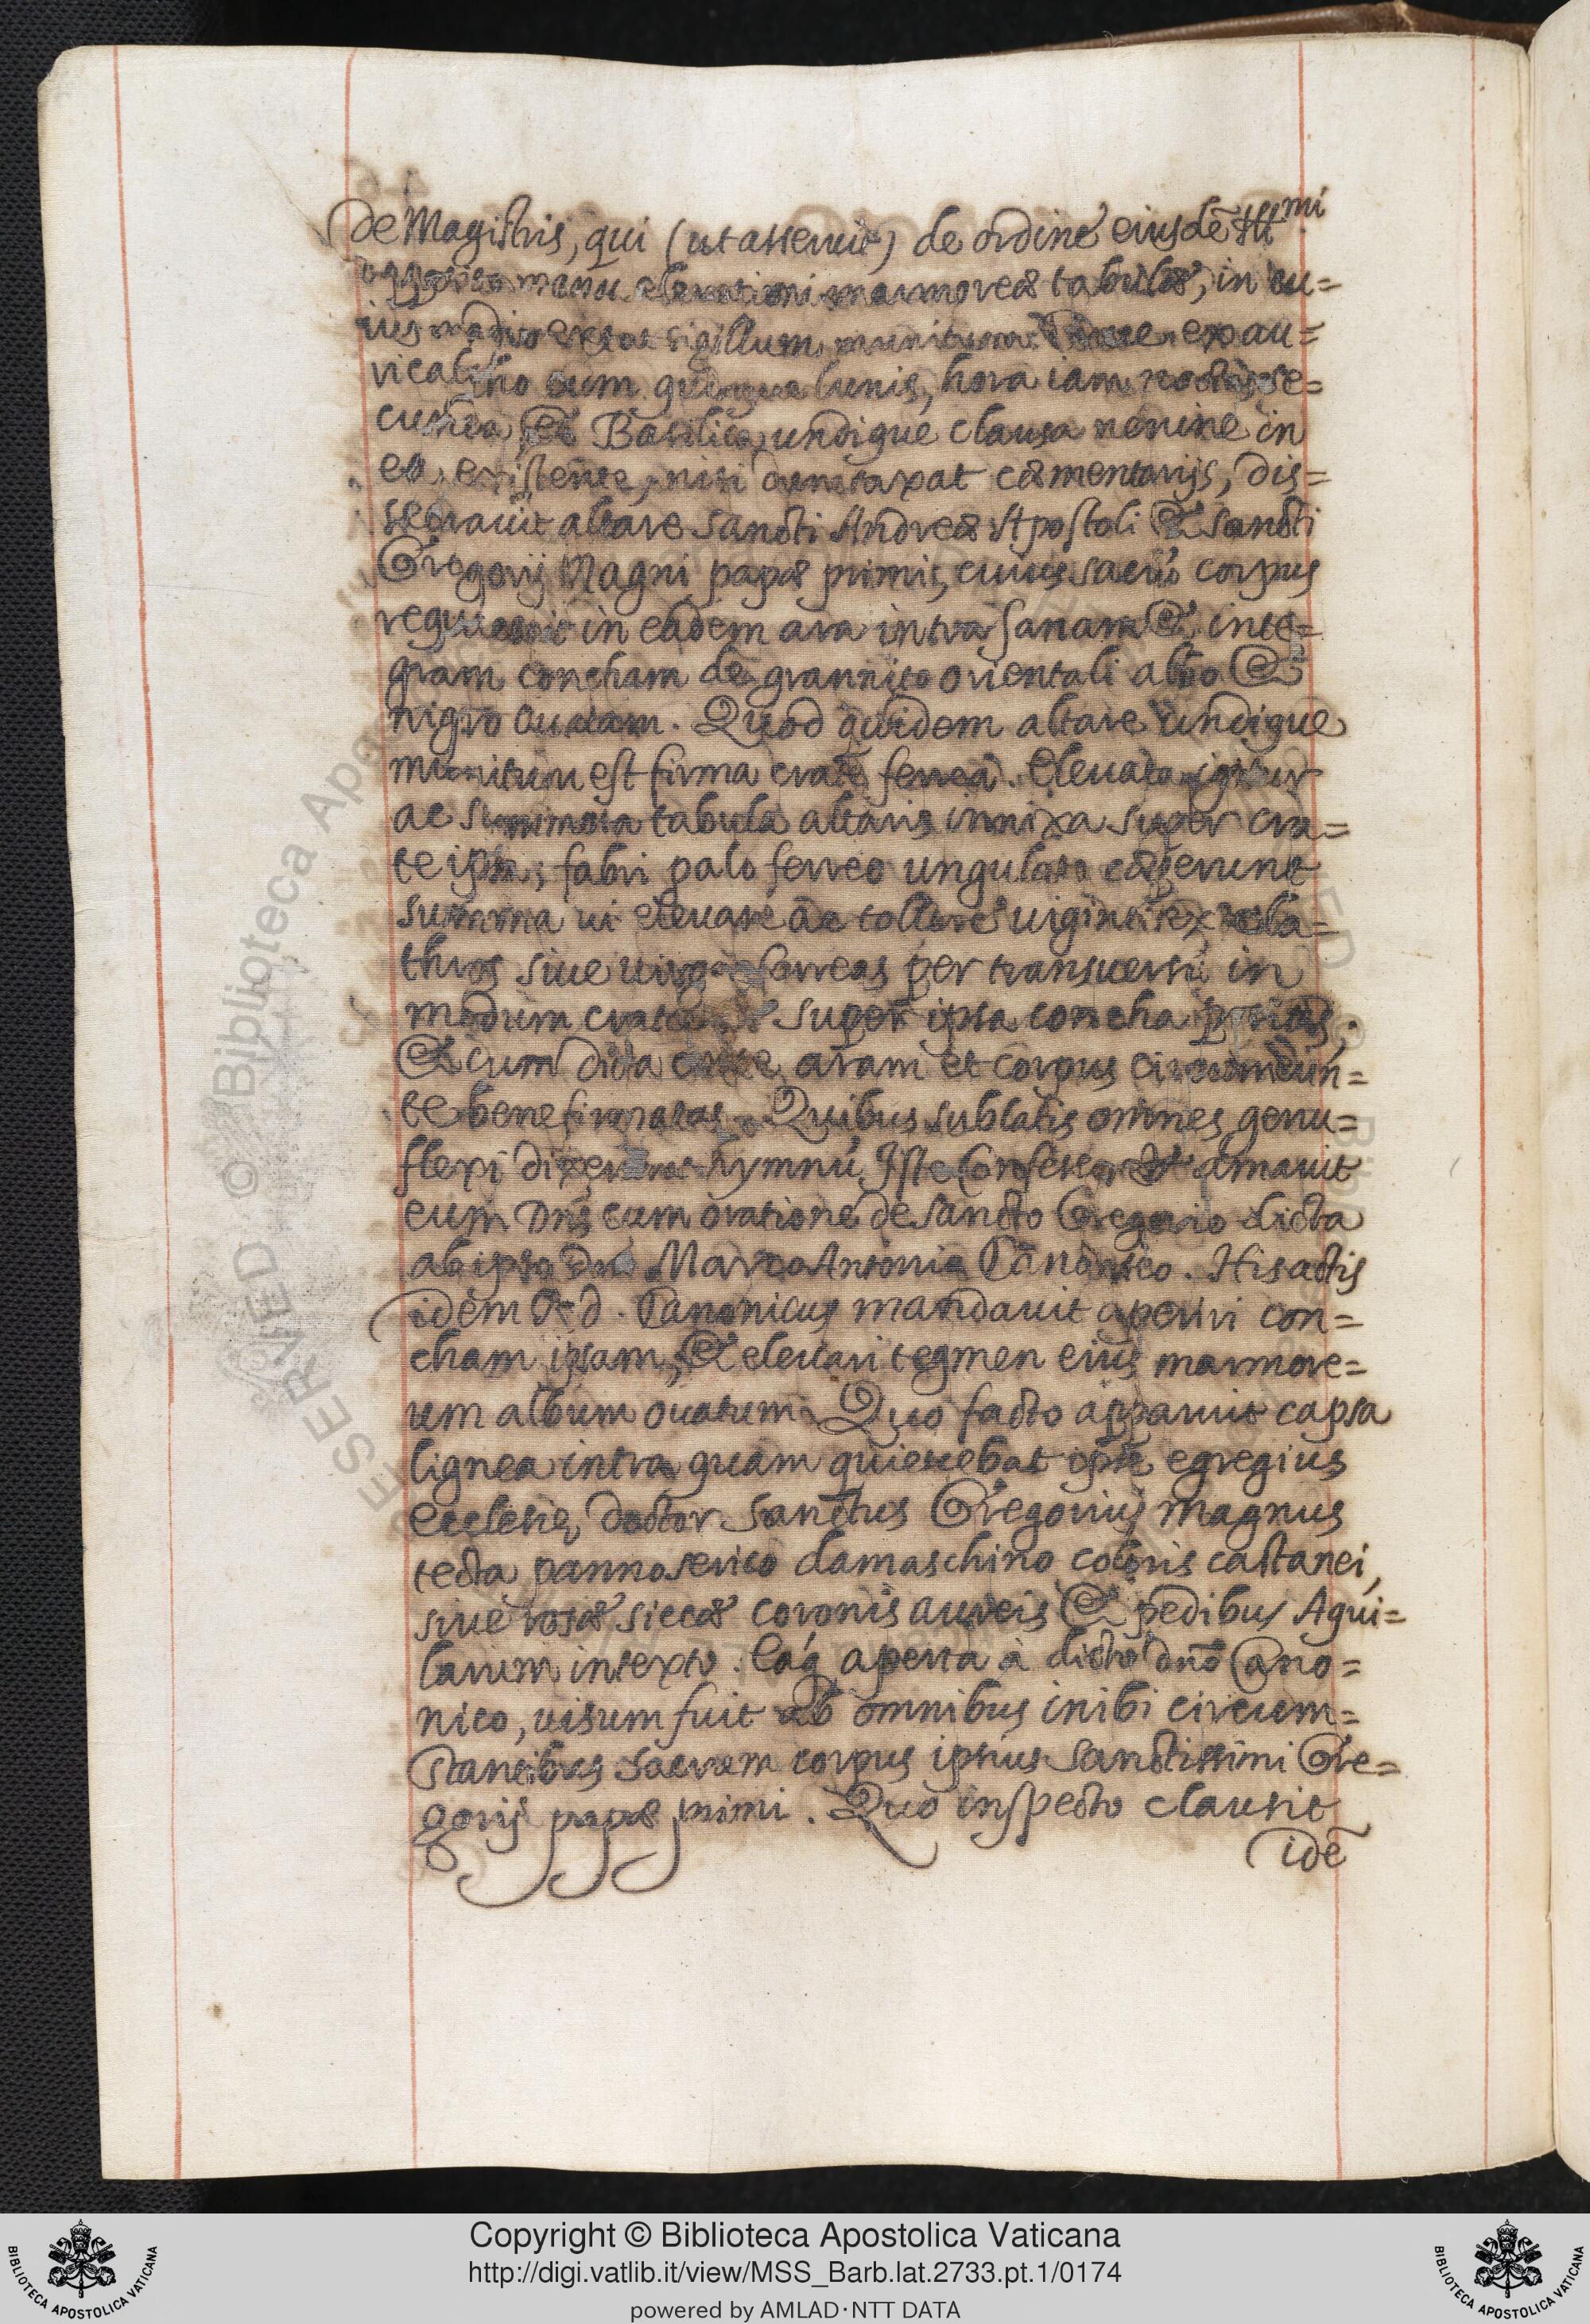 de Magistris, qui (ut asseruit) de ordine eiusdē Ill.mi
manu elevationi marmoreæ tabulæ, in cu=
ius medio extat sigillum munitum. ex au=
vicalcho cum quinque lunis, hora iam noctis se=
cunda, et Basilica undique clausa nemine in
ea existente, nisi dumtaxat cæmentarijs, dis=
secravit altare Sancti Andreæ Apostoli & Sancti
Gregorij Magni papæ primi, cuius sacrū corpus
requiescit in eadem ara intra sanam & inte=
gram concham de grannito orientali albo &
nigro ouatam. Quod quidem altare undique
munitum est firma crate ferrea. Eleuata igitur
ac summota tabula altaris innixa super cra=
te ipsa, fabri palo ferreo ungulato cæperunt
summa ui eleuare ac tollere uiginti sex
thros siue uirgas ferreas per transuersū in
modum cratis super ipsa concha positas,
& cum dicta crate aram et corpus circumeun=
te bene firmatas. Quibus sublatis omnes genu=
flexi dixerunt hymnū, Iste Confessor & amauit
eum Dn̄s cum oratione de Sancto Gregorio dicta
ab ipso dn̄o Marco Antonio Canonico. His actis
idem R. d. Canonicus mandauit aperiri con=
cham ipsam, & eleuari tegmen eius marmore=
um album ouatum. Quo facto apparuit capsa
lignea intra quam quiescebat ipse egregius
ecclesiæ doctor Sanctus Gregorius magnus
tecta panno serico damaschino coloris castanei,
siue rosæ siccæ coronis aureis & pedibus Aqui=
larum intexto. Eaq̓ aperta à dicto dn̄o Cano=
nico, uisum fuit ab omnibus inibi circum=
stantibus sacrum corpus ipsius Sanctissimi Gre=
gorij papæ primi. Quo inspecto clausit
idē
Copyright © Biblioteca Apostolica Vaticana
http://digi.vatlib.it/view/MSS_Barb.lat.2733.pt.1/0174
powered by AMLAD·NTT DATA
BIBLIOTECA APOSTOLICA VATICANA
BIBLIOTECA APOSTOLICA VATICANA